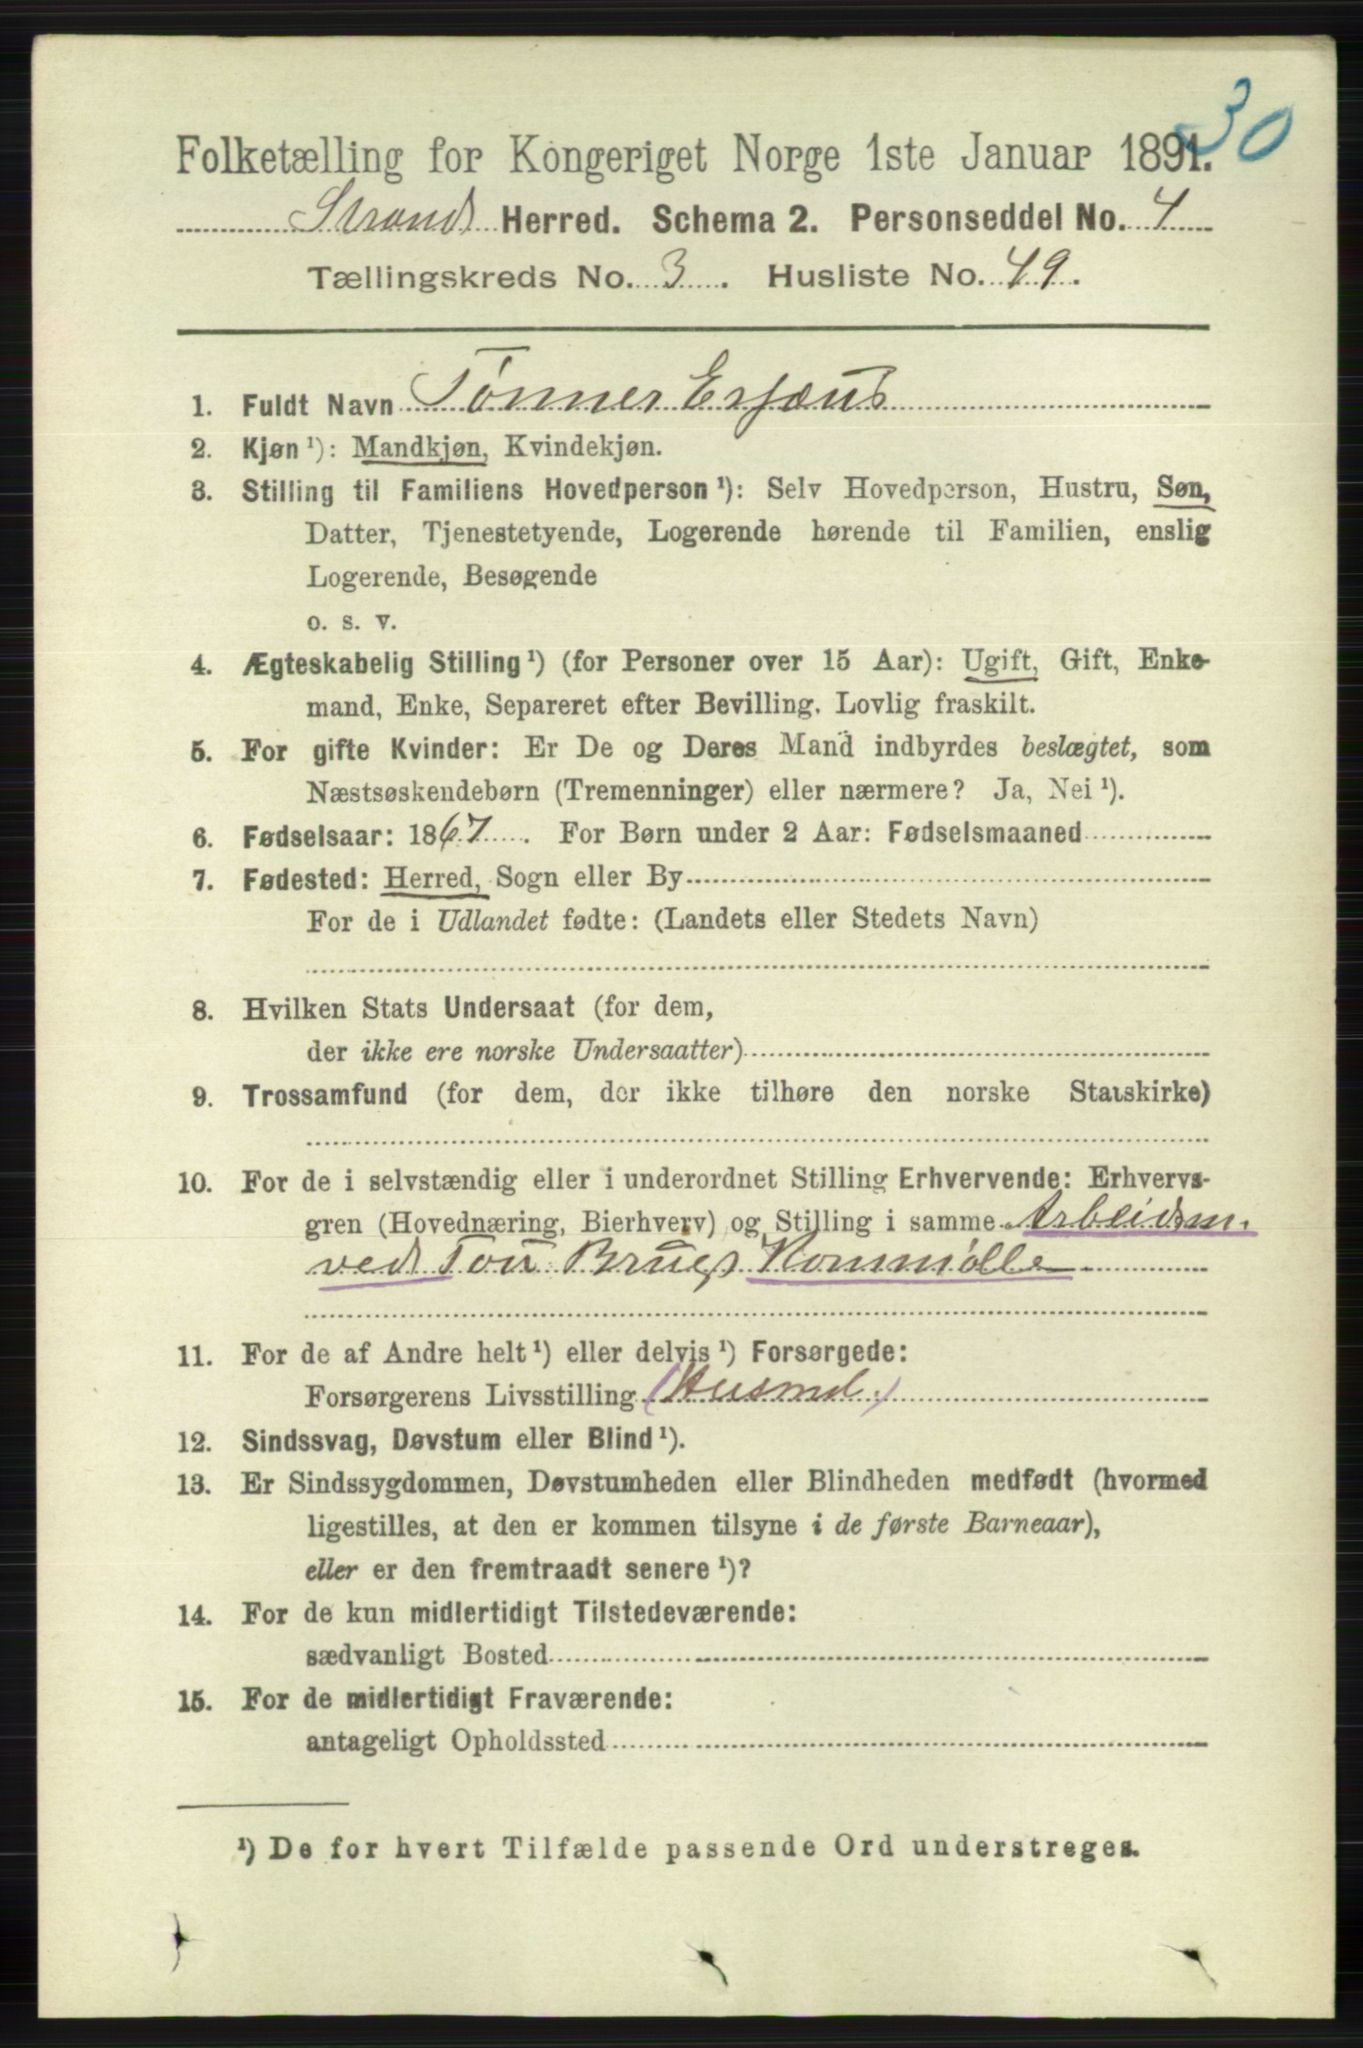 30
Folketælling for Kongeriget Norge 1ste Januar 1891.
Strand Herred. Schema 2. Personseddel No. 4
Tællingskreds No. 3. Husliste No. 49.
1. Fuldt Navn Tønnes
2. Kjøn ¹): Mandkjøn, Kvindekjøn.
3. Stilling til Familiens Hovedperson ¹): Selv Hovedperson, Hustru, Søn,
Datter, Tjenestetyende, Logerende hørende til Familien, enslig
Logerende, Besøgende
o. s. v.
4. Ægteskabelig Stilling ¹) (for Personer over 15 Aar): Ugift, Gift, Enke-
mand, Enke, Separeret efter Bevilling. Lovlig fraskilt.
5. For gifte Kvinder: Er De og Deres Mand indbyrdes beslægtet, som
Næstsøskendebørn (Tremenninger) eller nærmere? Ja, Nei ¹).
6. Fødselsaar: 1867. For Børn under 2 Aar: Fødselsmaaned
7. Fødested: Herred, Sogn eller By
For de i Udlandet fødte: (Landets eller Stedets Navn)
8. Hvilken Stats Undersaat (for dem,
der ikke ere norske Undersaatter)
9. Trossamfund (for dem, der ikke tilhøre den norske Statskirke)
10. For de i selvstændig eller i underordnet Stilling Erhvervende: Erhvervs-
gren (Hovednæring, Bierhverv) og Stilling i samme Arbeidsm.
ved Tou Brugs Kornmølle
11. For de af Andre helt ¹) eller delvis ¹) Forsørgede:
Forsørgerens Livsstilling (Husmd.)
12. Sindssvag, Døvstum eller Blind ¹).
13. Er Sindssygdommen, Døvstumheden eller Blindheden medfødt (hvormed
ligestilles, at den er kommen tilsyne i de første Barneaar),
eller er den fremtraadt senere ¹)?
14. For de kun midlertidigt Tilstedeværende:
sædvanligt Bosted
15. For de midlertidigt Fraværende:
antageligt Opholdssted
¹) De for hvert Tilfælde passende Ord understreges.